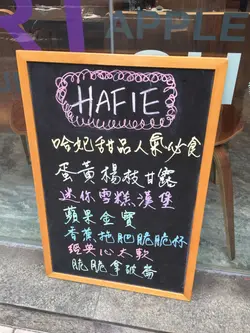 APPLE
HAFIE
哈妃甜品人氣必食
蛋黃楊枝甘露
迷你雪糕漢堡
蘋果金寶
香蕉拖肥脆脆杯
經典心太軟
脆脆拿破崙